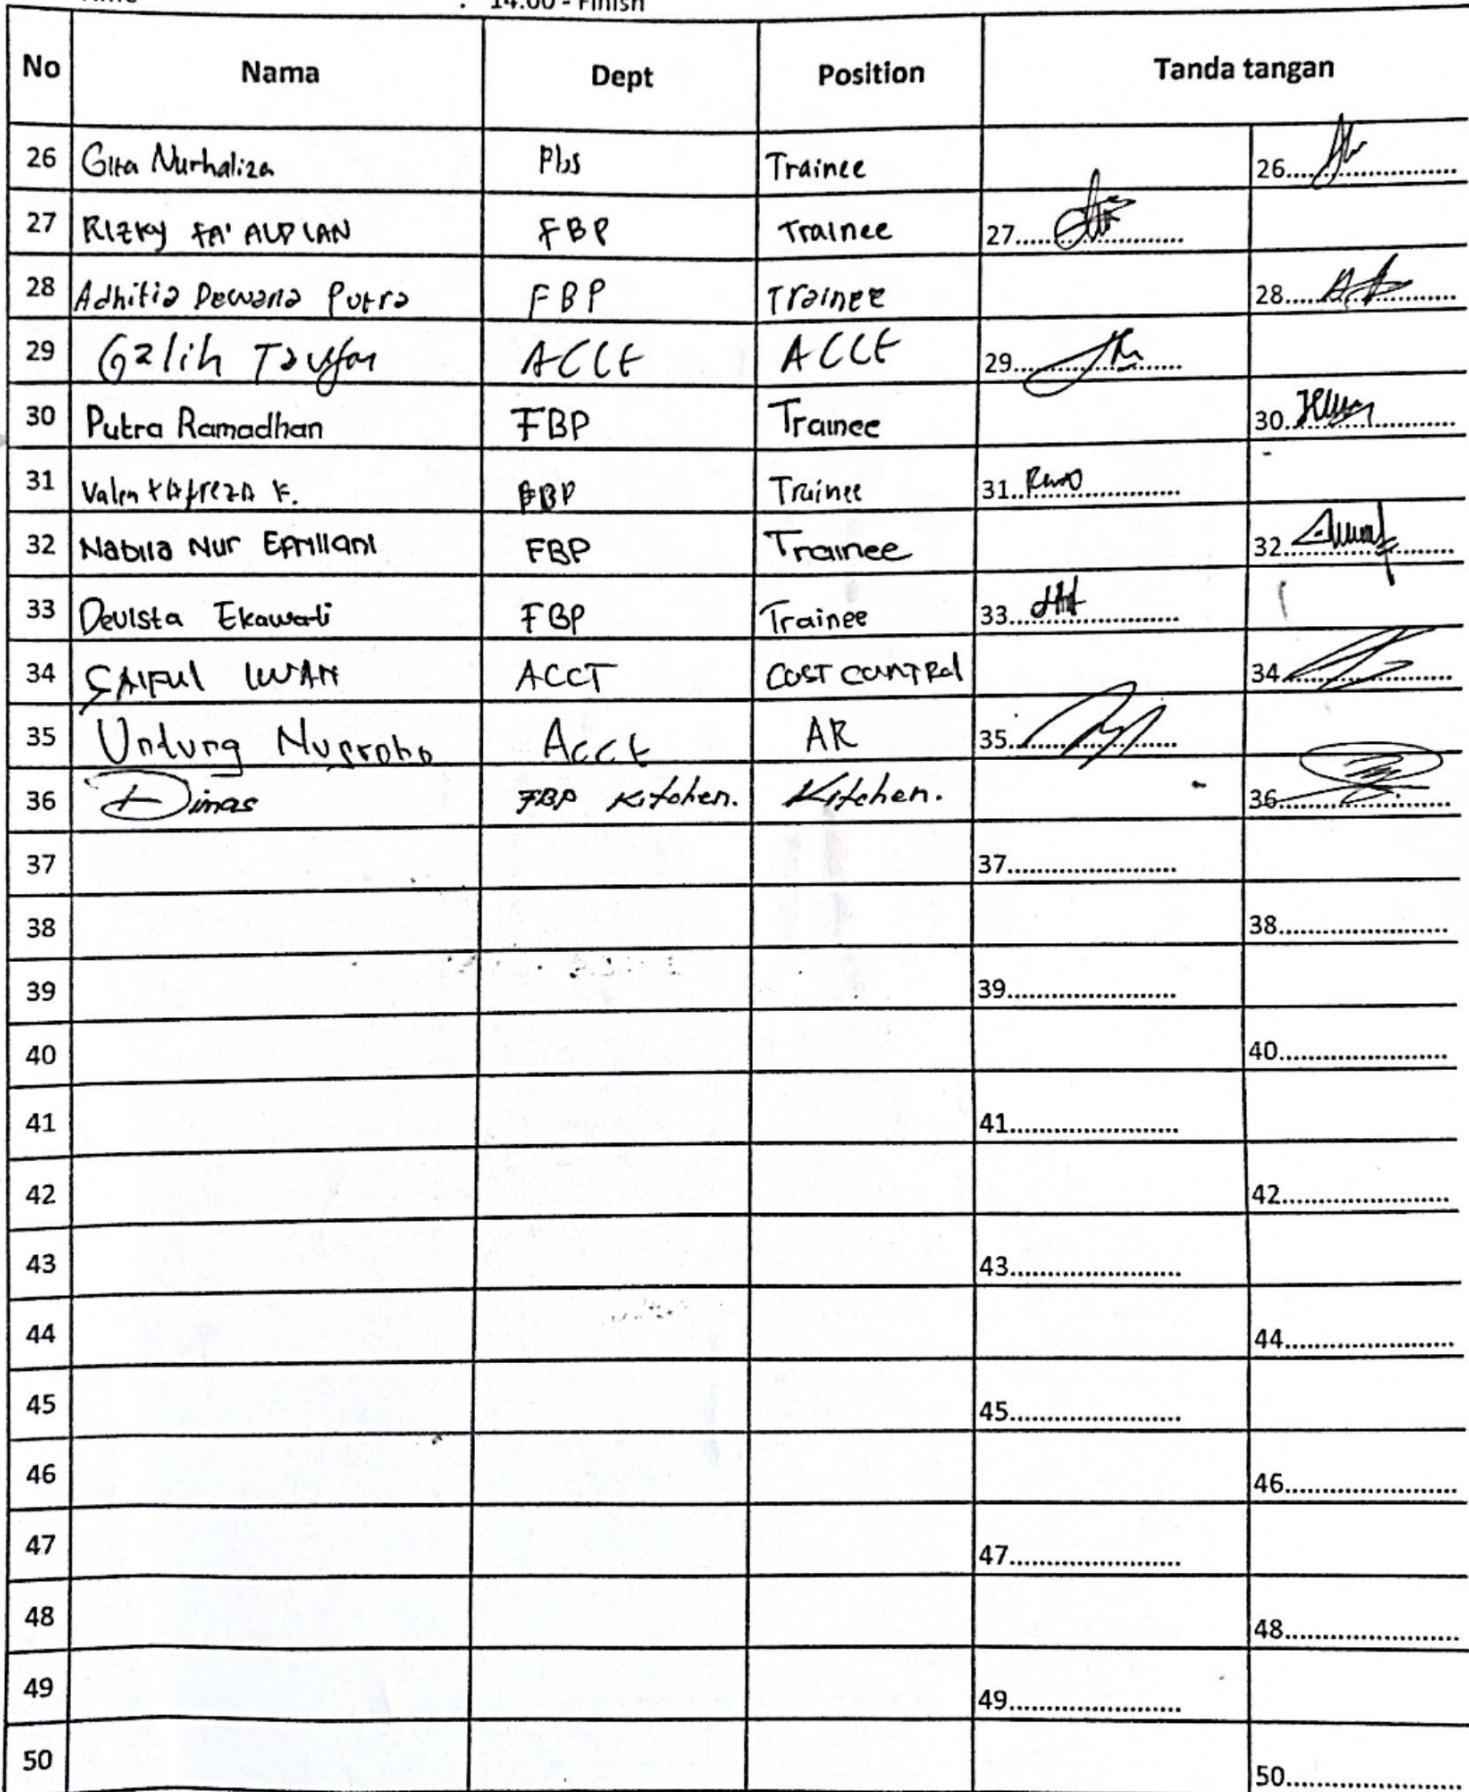 : 14.00 - Finish
No Nama Dept Position Tanda tangan
26 Gita Nurhaliza Trainee 26
27 RIZKY FA' ALDIAN FBP Trainee 27
28 Adhitia Dewana Putra FBP Trainee 28
29 Galih Taufan ACCt ACCt 29
30 Putra Ramadhan FBP Trainee 30
31 Valen K. FBP Trainee 31
32 Nabila Nur Efrillani FBP Trainee 32
33 Devista Ekawati FBP Trainee 33
34 SAIFUL IWAN ACCT COST CONTROL 34
35 Untung Nugroho Acct AR 35
36 Dimas FBP Kitchen. Kitchen. 36
37 37
38 38
39 39
40 40
41 41
42 42
43 43
44 44
45 45
46 46
47 47
48 48
49 49
50 50